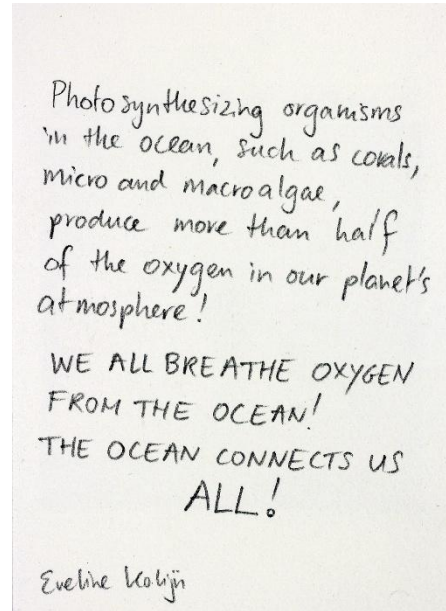 Photosynthesizing organisms
in the ocean, such as corals,
micro and macroalgae,
produce more than half
of the oxygen in our planet's
atmosphere!
WE ALL BREATHE OXYGEN
FROM THE OCEAN!
THE OCEAN CONNECTS US
ALL!
Eveline Kolijn